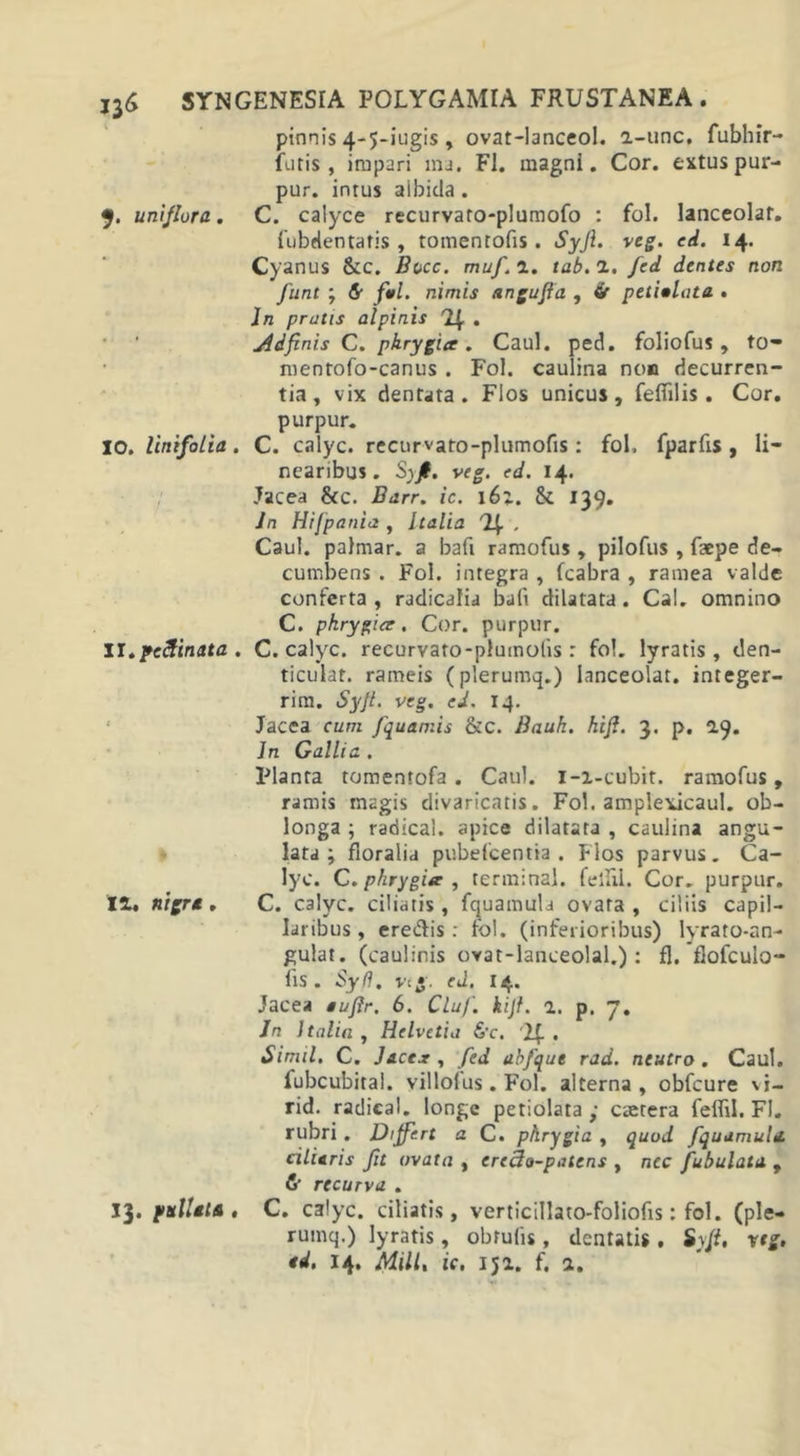 136 SYNGENESIA POLYGAMIA FRUSTANEA.
pinnis 4-5-iugis, ovat-lanceol. 2-unc. ſubhir-
ſutis, impari ma. Fl. magni. Cor. extus pur-
pur. intus albida.
9. uniflora. C. calyce recurvato-plumoſo : fol. lanceolat.
ſubdentatis, tomentoſis. Syſt. veg. ed. 14.
Cyanus &c. Bocc. muſ. 2. tab. 2. ſed dentes non
ſunt ; & fol. nimis anguſta, & petiolata.
In pratis alpinis ♃.
Adfinis C. phrygiæ. Caul. ped. folioſus, to-
mentoſo-canus. Fol. caulina non decurren-
tia, vix dentata. Flos unicus, ſeſſilis. Cor.
purpur.
10. linifolia. C. calyc. recurvato-plumoſis : fol. ſparſis, li-
nearibus. Syſt. veg. ed. 14.
Jacea &c. Barr. ic. 162. & 139.
In Hiſpania, Italia ♃.
Caul. palmar. a baſi ramoſus, piloſus, ſæpe de-
cumbens. Fol. integra, ſcabra, ramea valde
conferta, radicalia baſi dilatata. Cal. omnino
C. phrygiæ. Cor. purpur.
11. pectinata. C. calyc. recurvato-plumoſis : fol. lyratis, den-
ticulat. rameis (plerumq.) lanceolat. integer-
rim. Syſt. veg. ed. 14.
Jacea cum ſquamis &c. Bauh. hiſt. 3. p. 29.
In Gallia.
Planta tomentoſa. Caul. 1-2-cubit. ramoſus,
ramis magis divaricatis. Fol. amplexicaul. ob-
longa ; radical. apice dilatata, caulina angu-
lata ; floralia pubeſcentia. Flos parvus. Ca-
lyc. C. phrygiæ, terminal. ſeſſil. Cor. purpur.
12. nigra. C. calyc. ciliatis, ſquamula ovata, ciliis capil-
laribus, erectis : fol. (inferioribus) lyrato-an-
gulat. (caulinis ovat-lanceolal.) : fl. floſculo-
ſis. Syſt. veg. ed. 14.
Jacea auſtr. 6. Cluſ. hiſt. 2. p. 7.
In Italia, Helvetia &c. ♃.
Simil. C. Jaceæ, ſed abſque rad. neutro. Caul.
ſubcubital. villoſus. Fol. alterna, obſcure vi-
rid. radical. longe petiolata ; cætera ſeſſil. Fl.
rubri. Differt a C. phrygia, quod ſquamula
ciliaris ſit ovata, erecto-patens, nec ſubulata,
& recurva.
13. pullata. C. calyc. ciliatis, verticillato-folioſis : fol. (ple-
rumq.) lyratis, obtuſis, dentatis. Syſt. veg.
ed. 14. Mill. ic. 152. f. 2.